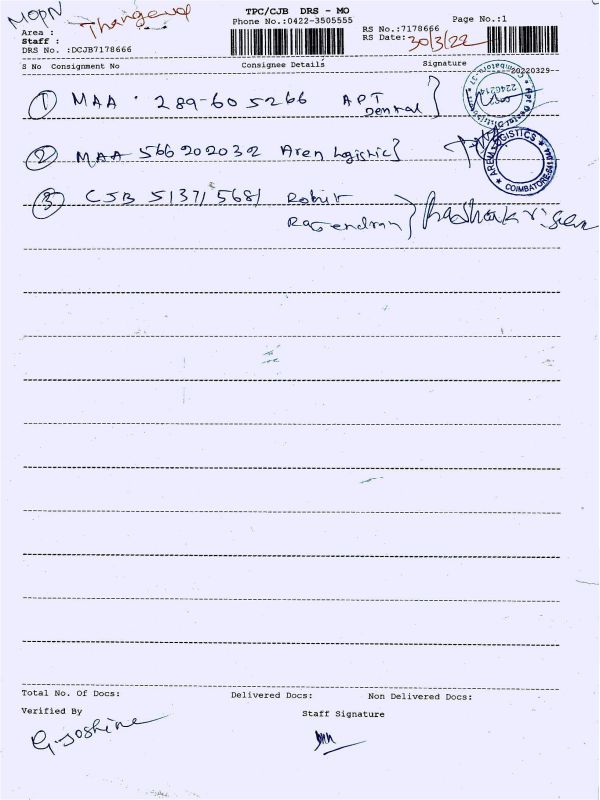 MOPN Thangavel
TPC/CJB DRS - MO
Phone No.:0422-3505555
RS No.:7178666
Page No.:1
Area :
Staff :
RS Date: 30/3/22
DRS No. :DCJB7178666
S No Consignment No Consignee Details Signature
20220329
1 MAA 289-605266 APT
Dental
2 MAA 566202032 Aren Logistic
AREM LOGISTICS
COIMBATORE-641 044
3 CJB 513715681 Rohit
Rajendran
Total No. Of Docs: Delivered Docs: Non Delivered Docs:
Verified By Staff Signature
G. Joshine